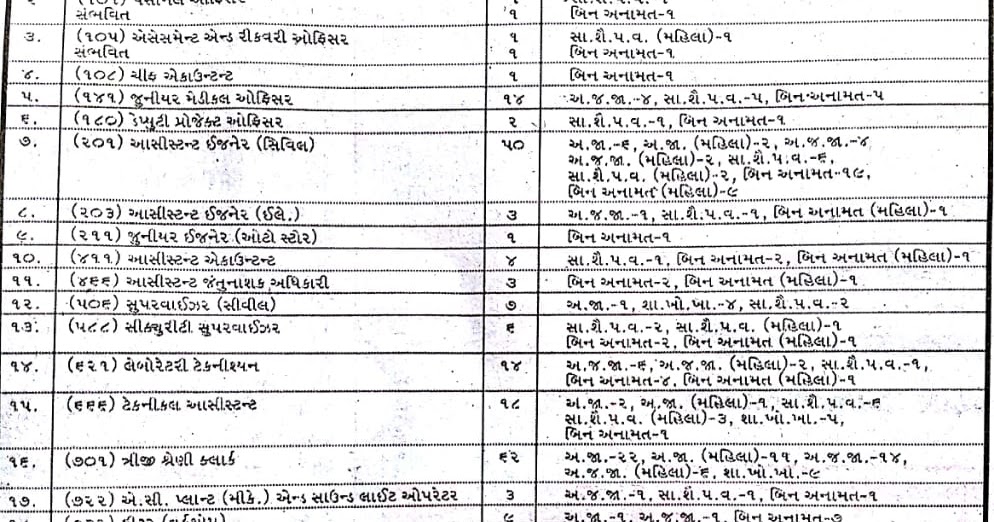 સંભવિત ૧ બિન અનામત-૧
૩. (૧૦૫) એસેસમેન્ટ એન્ડ રીકવરી ઓફિસર ૧ સા.શૈ.પ.વ. (મહિલા)-૧
સંભવિત ૧ બિન અનામત-૧
૪. (૧૦૮) ચીફ એકાઉન્ટન્ટ ૧ બિન અનામત-૧
૫. (૧૪૧) જુનીયર મેડીકલ ઓફિસર ૧૪ અ.જ.જા.-૪, સા.શૈ.પ.વ.-૫, બિન અનામત-૫
૬. (૧૮૦) ડેપ્યુટી પ્રોજેક્ટ ઓફિસર ૨ સા.શૈ.પ.વ.-૧, બિન અનામત-૧
૭. (૨૦૧) આસીસ્ટન્ટ ઈજનેર (સિવિલ) ૫૦ અ.જા.-૬, અ.જા. (મહિલા)-૨, અ.જ.જા.-૪
અ.જ.જા. (મહિલા)-૨, સા.શૈ.પ.વ.-૬,
સા.શૈ.પ.વ. (મહિલા)-૨, બિન અનામત-૧૯,
બિન અનામત (મહિલા)-૯
૮. (૨૦૩) આસીસ્ટન્ટ ઈજનેર (ઈલે.) ૩ અ.જ.જા.-૧, સા.શૈ.પ.વ.-૧, બિન અનામત (મહિલા)-૧
૯. (૨૧૧) જુનીયર ઈજનેર (ઓટો સ્ટોર) ૧ બિન અનામત-૧
૧૦. (૪૧૧) આસીસ્ટન્ટ એકાઉન્ટન્ટ ૪ સા.શૈ.પ.વ.-૧, બિન અનામત-૨, બિન અનામત (મહિલા)-૧
૧૧. (૪૬૬) આસીસ્ટન્ટ જંતુનાશક અધિકારી ૩ બિન અનામત-૨, બિન અનામત (મહિલા)-૧
૧૨. (૫૦૬) સુપરવાઈઝર (સીવીલ) ૭ અ.જા.-૧, શા.ખો.ખા.-૪, સા.શૈ.પ.વ.-૨
૧૩. (૫૮૮) સીક્યુરીટી સુપરવાઈઝર ૬ સા.શૈ.પ.વ.-૨, સા.શૈ.પ.વ. (મહિલા)-૧
બિન અનામત-૨, બિન અનામત (મહિલા)-૧
૧૪. (૬૨૧) લેબોરેટરી ટેકનીશ્યન ૧૪ અ.જ.જા.-૬, અ.જ.જા. (મહિલા)-૨, સા.શૈ.પ.વ.-૧,
બિન અનામત-૪, બિન અનામત (મહિલા)-૧
૧૫. (૬૬૬) ટેકનીકલ આસીસ્ટન્ટ ૧૮ અ.જા.-૨, અ.જા. (મહિલા)-૧, સા.શૈ.પ.વ.-૬
સા.શૈ.પ.વ. (મહિલા)-૩, શા.ખો.ખા.-૫,
બિન અનામત-૧
૧૬. (૭૦૧) ત્રીજી શ્રેણી કલાર્ક ૬૨ અ.જા.-૨૨, અ.જા. (મહિલા)-૧૧, અ.જ.જા.-૧૪,
અ.જ.જા. (મહિલા)-૬, શા.ખો.ખો.-૯
૧૭. (૭૨૨) એ.સી. પ્લાન્ટ (મીકે.) એન્ડ સાઉન્ડ લાઈટ ઓપરેટર ૩ અ.જ.જા.-૧, સા.શૈ.પ.વ.-૧, બિન અનામત-૧
૯ અ.જા.-૧, અ.જ.જા.-૧, બિન અનામત-૭